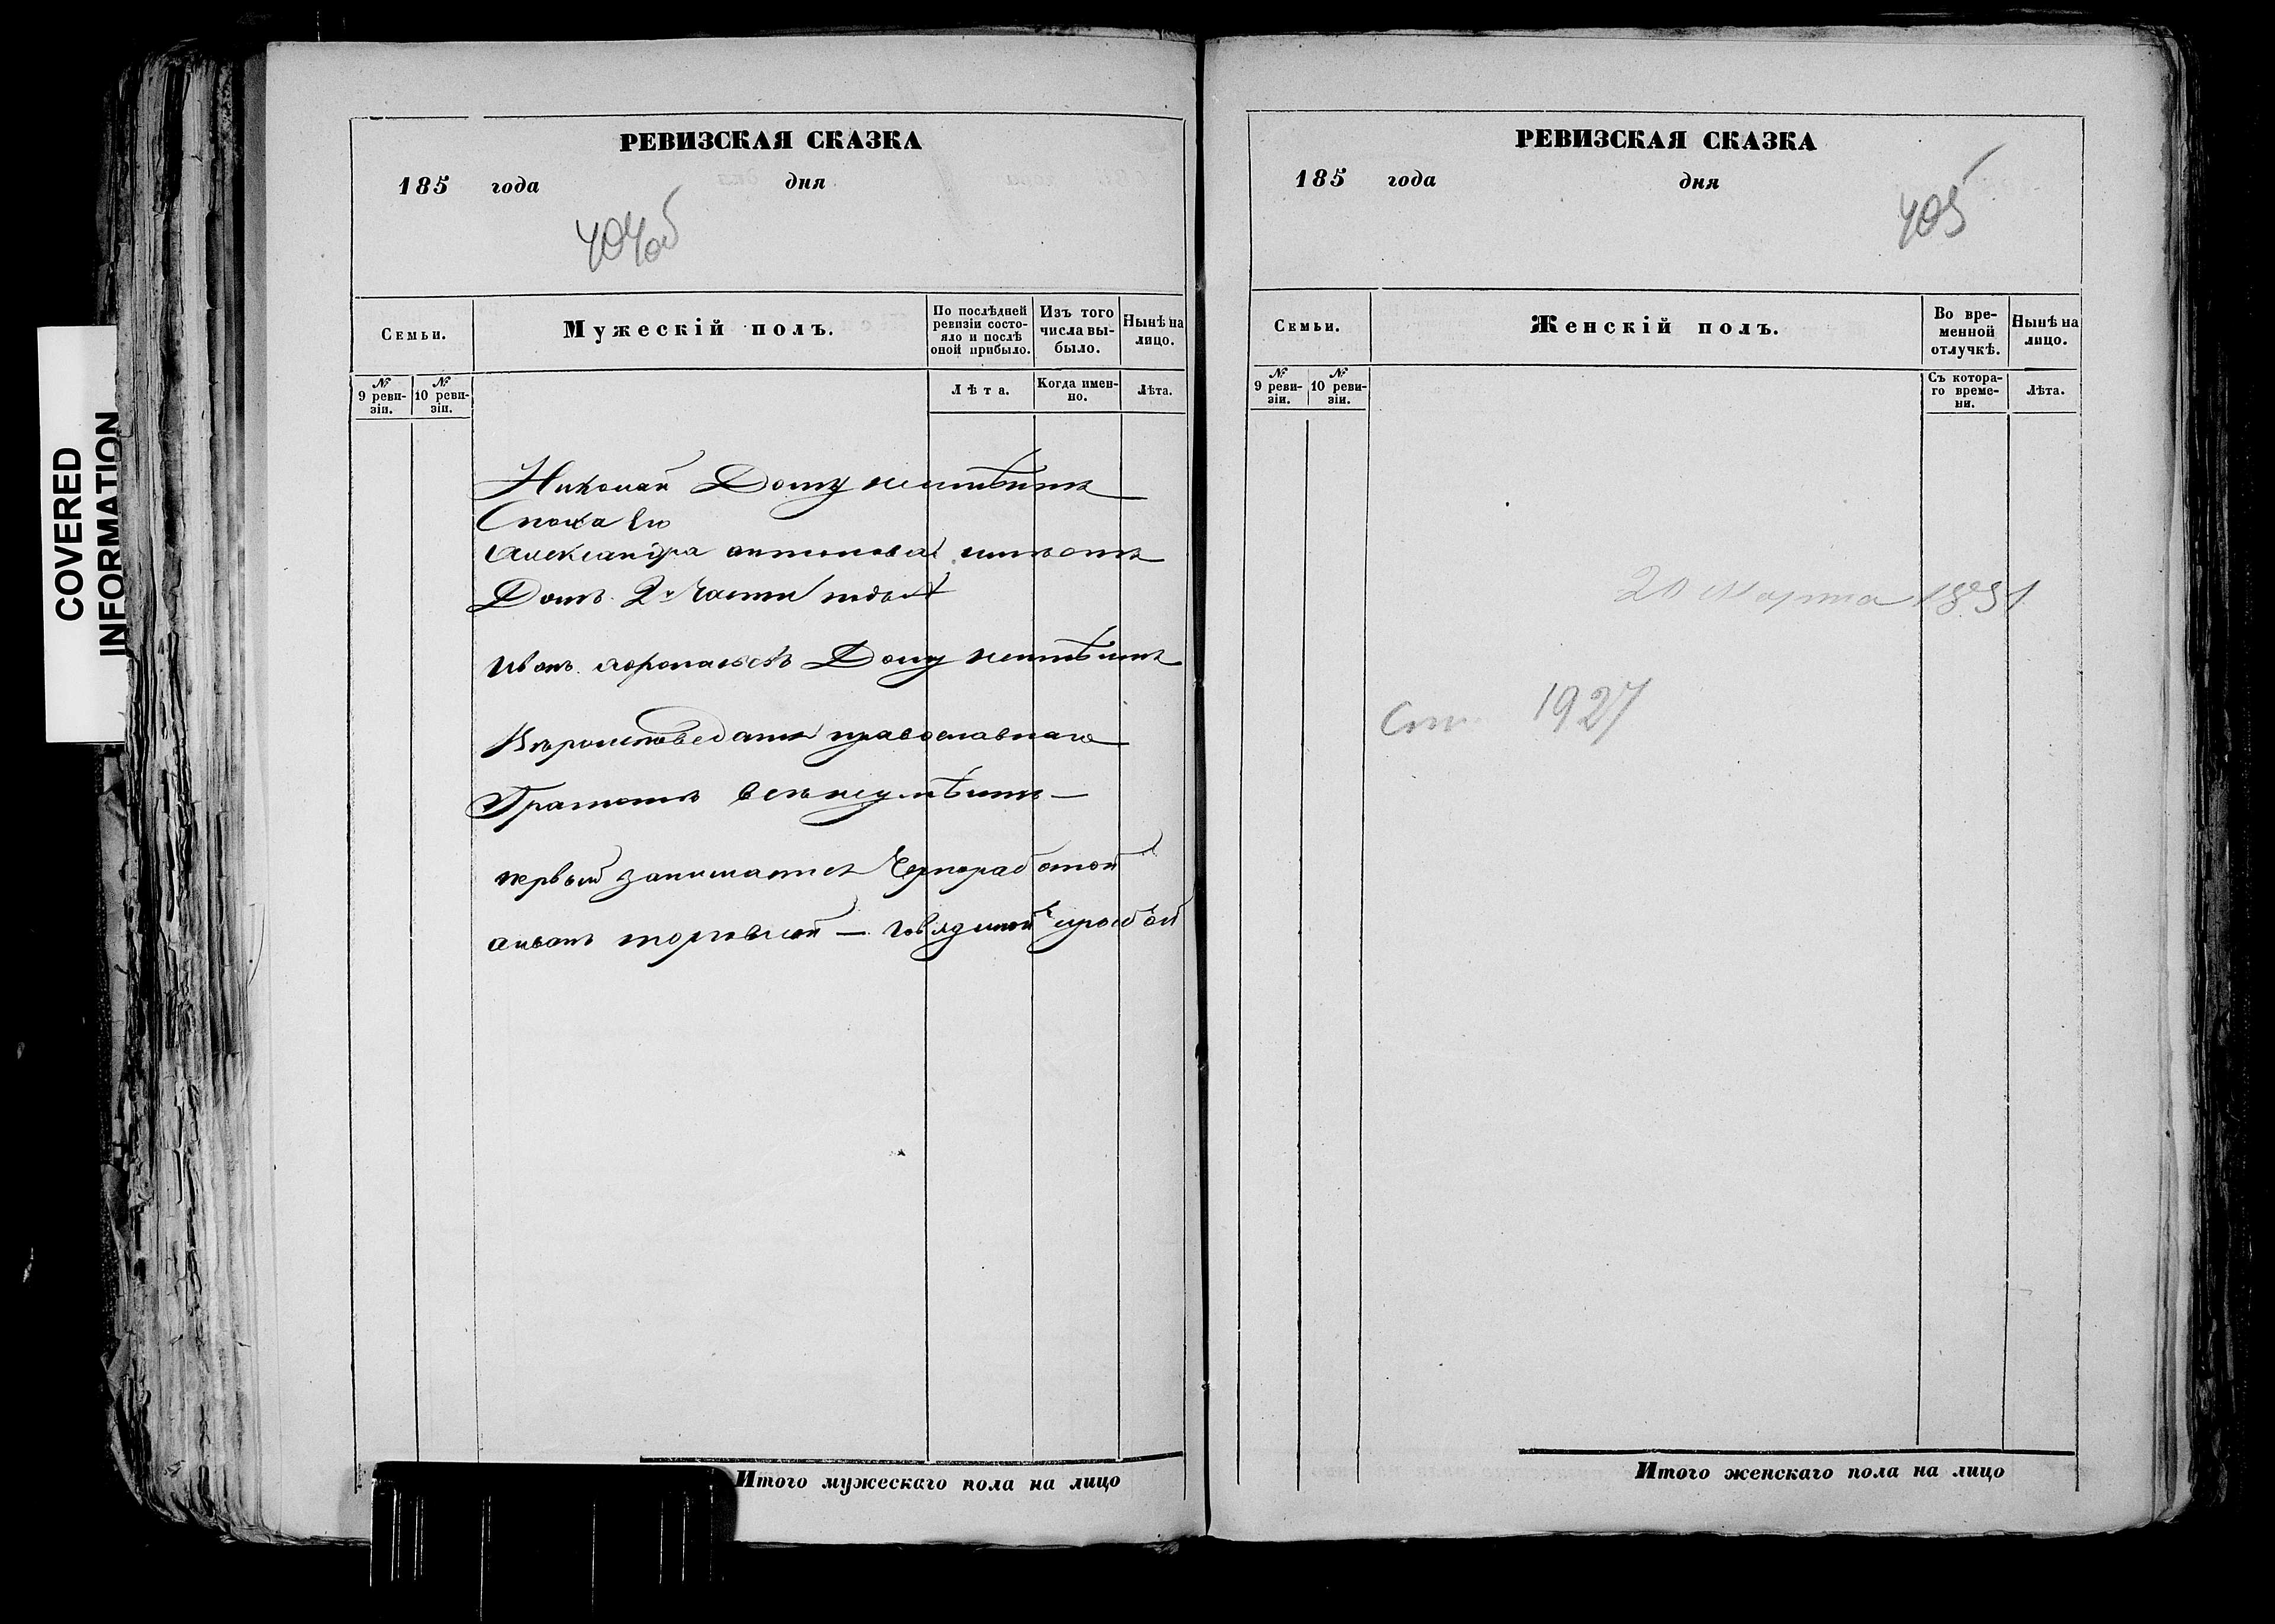 COVERED
INFORMATION
РЕВИЗСКАЯ СКАЗКА
185 года дня
404об
Семьи.
Мужескій полъ.
По послѣдней ревизіи состояло и послѣ оной прибыло.
Изъ того числа выбыло.
Нынѣ на лицо.
№ 9 ревизіи.
№ 10 ревизіи.
Лѣта.
Когда именно.
Лѣта.
Николай Дому неимѣитъ
Александра имѣетъ
Домъ 2й части
Иванъ Дому неимѣитъ
Вѣроисповеданія православнаго
Грамотѣ всѣ неумѣитъ
первый занимаится Чорноработой
аиванъ торговлей — говядиной
Итого мужескаго пола на лицо
РЕВИЗСКАЯ СКАЗКА
185 года дня
405
Семьи.
Женскій полъ.
Во временной отлучкѣ.
Нынѣ на лицо.
№ 9 ревизіи.
№ 10 ревизіи.
Съ котораго времени.
Лѣта.
20 Марта
1927
Итого женскаго пола на лицо